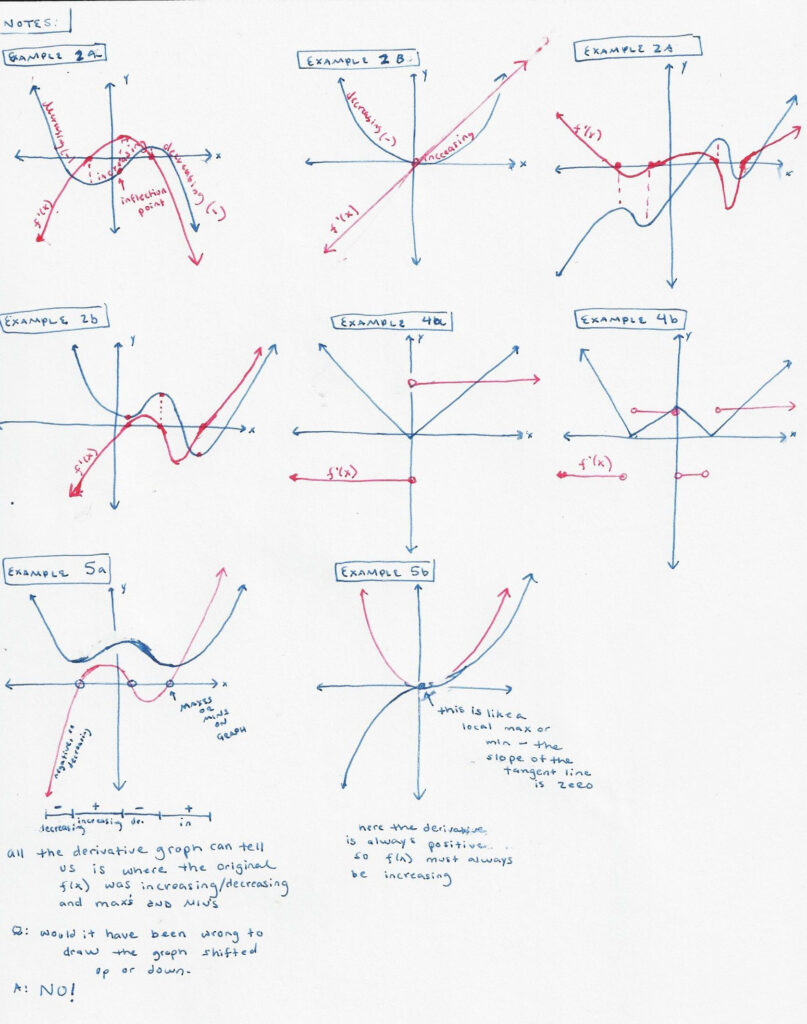 NOTES:
EXAMPLE 2a
EXAMPLE 2B
EXAMPLE 2A
y
decreasing(-)
increasing
decreasing(-)
x
inflection
point
f'(x)
y
decreasing(-)
increasing
x
f'(x)
y
f'(x)
x
EXAMPLE 2b
EXAMPLE 4a
EXAMPLE 4b
y
x
f'(x)
y
x
f'(x)
y
x
f'(x)
EXAMPLE 5a
EXAMPLE 5b
y
x
MAXES
OR
MINS
ON
GRAPH
negative, so
decreasing
- + - +
decreasing increasing de. in
this is like a
local max or
min - the
slope of the
tangent line
is zero
here the derivative
is always positive...
so f(x) must always
be increasing
all the derivative graph can tell
us is where the original
f(x) was increasing/decreasing
and max's AND MIN'S
Q: would it have been wrong to
draw the graph shifted
up or down.
A: NO!